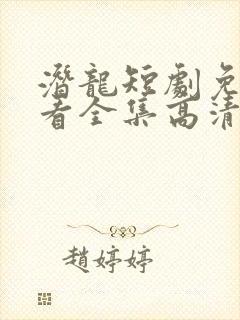 潛龍短劇免
看全集高清
趙婷婷